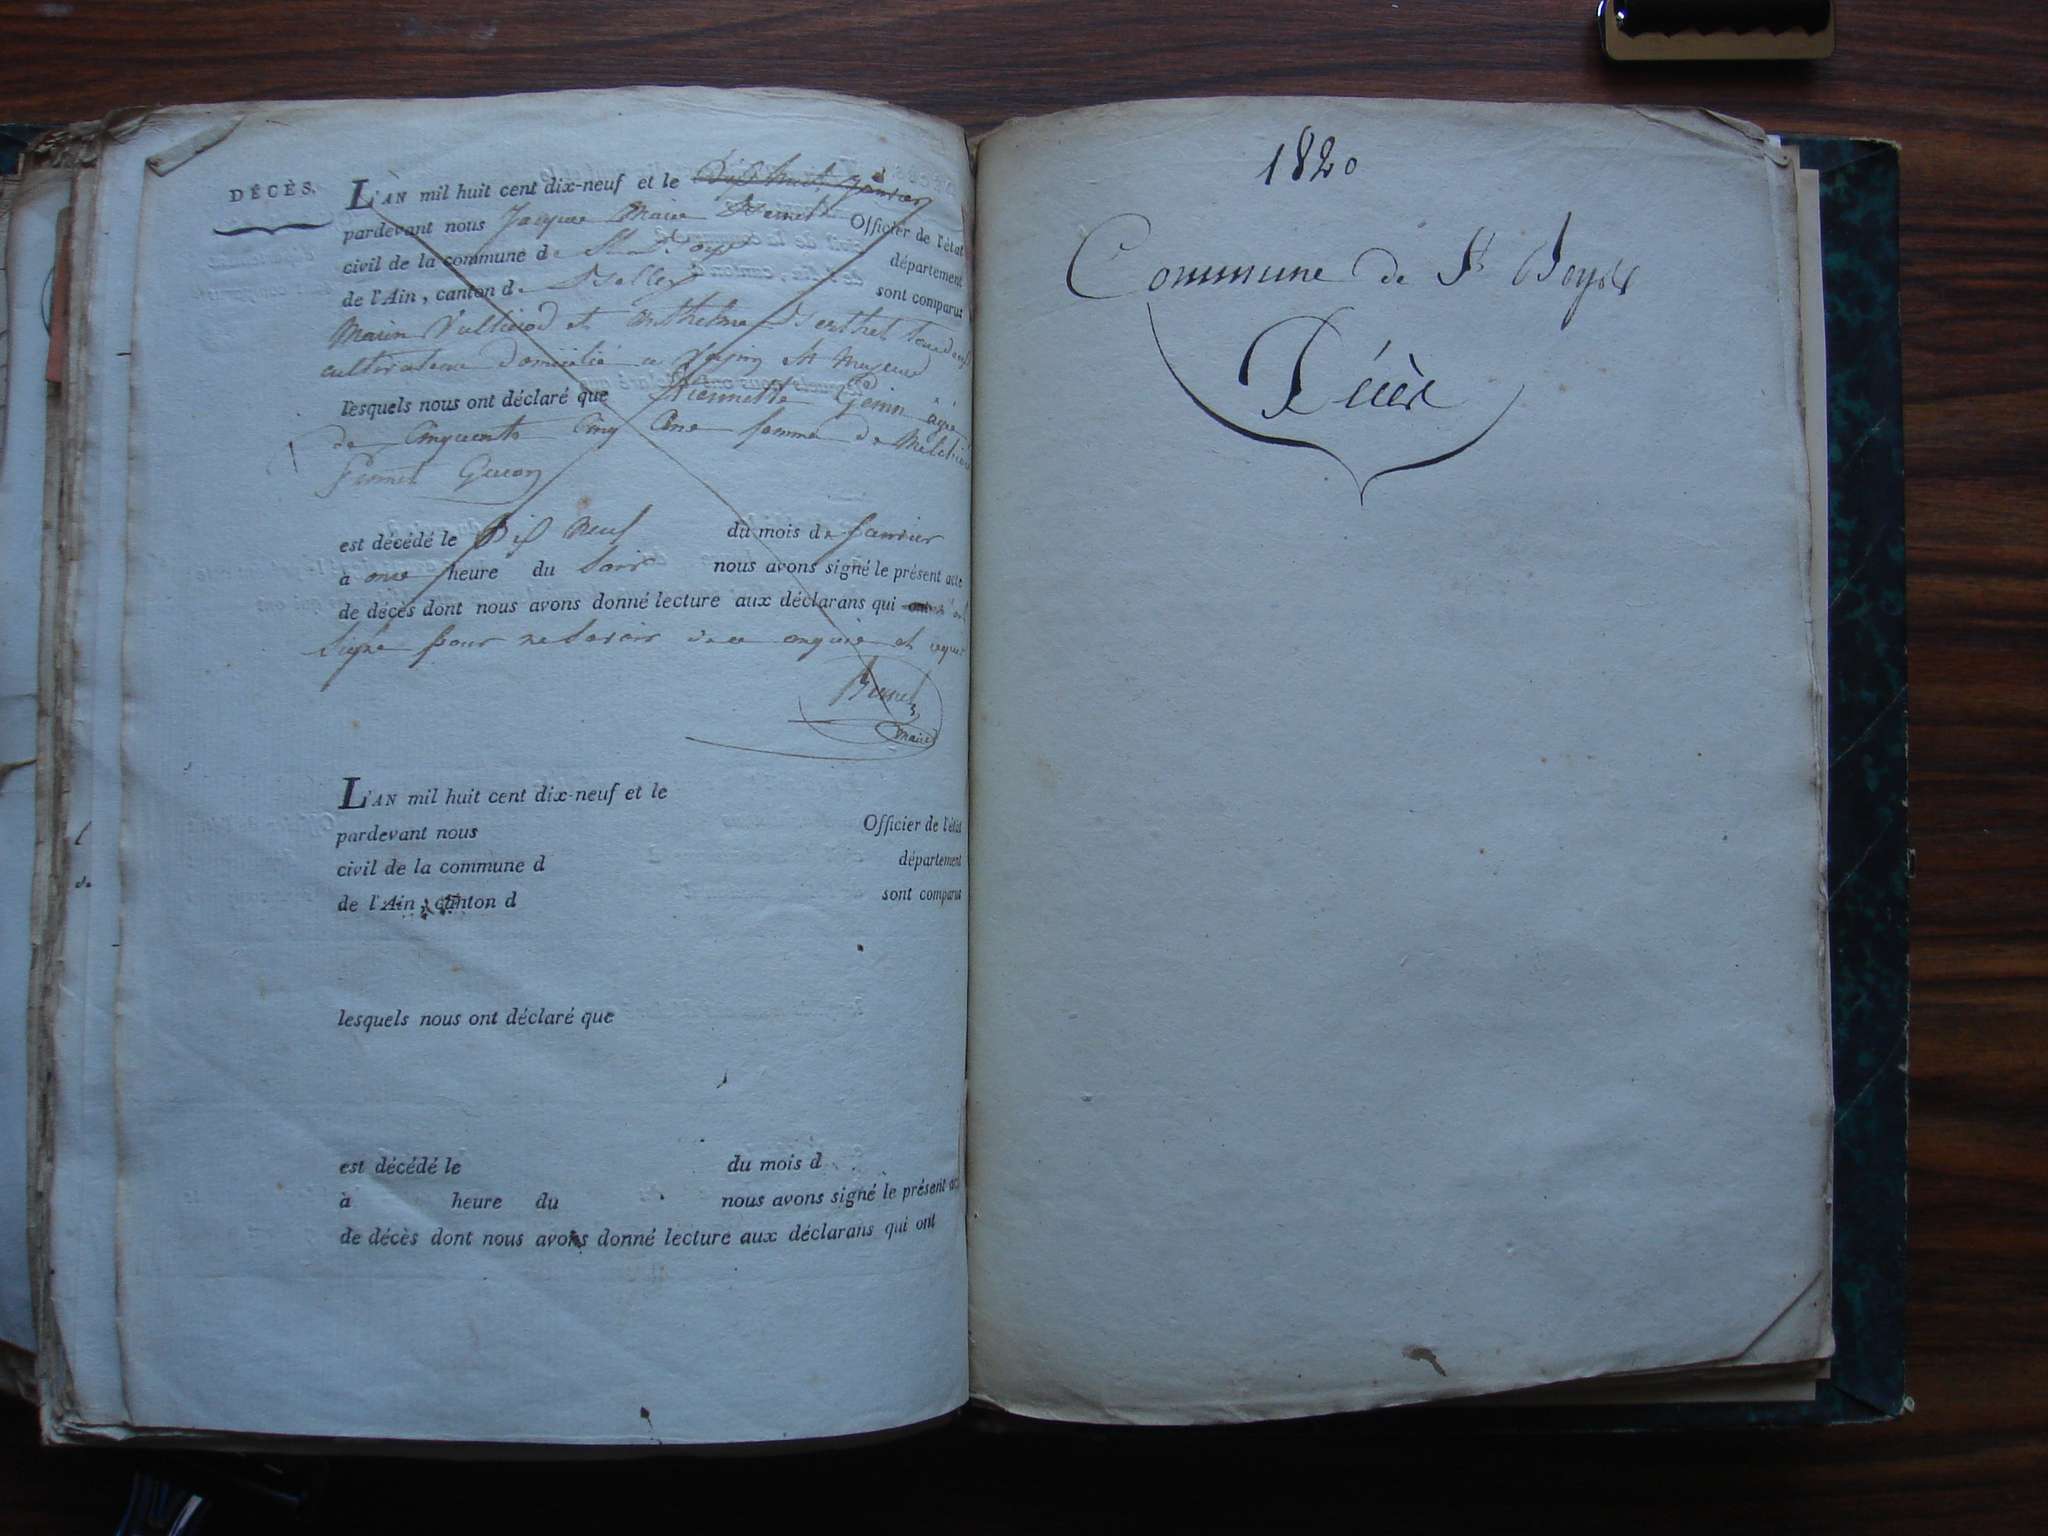 DÉCÈS.
L'AN mil huit cent dix-neuf et le Dix huit janvier
pardevant nous Jacque Marie Officier de l'état
civil de la commune de département
de l'Ain, canton de Belley sont comparus
Marin et Anthelme
cultivateur domicilié
lesquels nous ont déclaré que Etiennette Genin âgée
de Cinquante Cinq ans femme de Melchior
est décédé le Dix Neuf du mois de Janvier
à onze heure du soir nous avons signé le présent acte
de décès dont nous avons donné lecture aux déclarans qui ont
signé pour ne savoir de ce enquis et requis
maire
L'AN mil huit cent dix-neuf et le
pardevant nous Officier de l'état
civil de la commune d département
de l'Ain, canton d sont comparus
lesquels nous ont déclaré que
est décédé le du mois d
à heure du nous avons signé le présent acte
de décès dont nous avons donné lecture aux déclarans qui ont
1820
Commune de St Boys
Décès